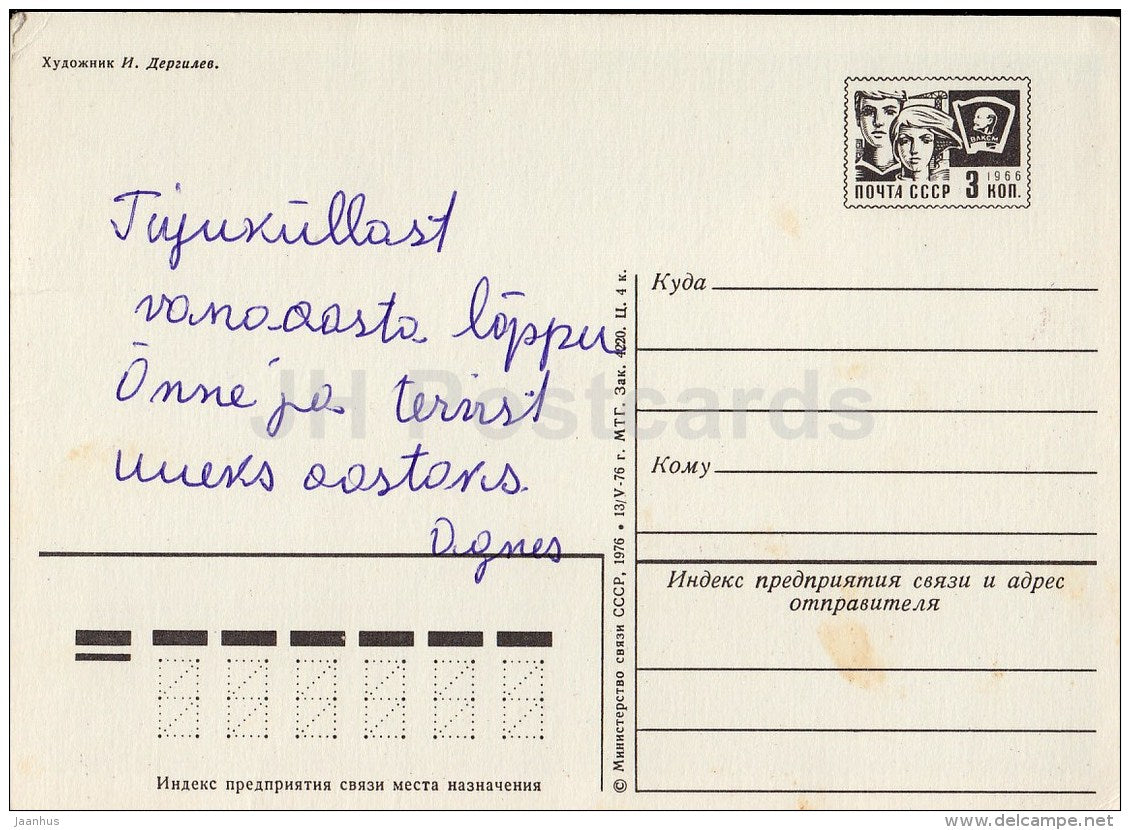 Художник И. Дергилев.
ВЛКСМ
1966
ПОЧТА СССР 3 КОП.
Tujuküllast
vana aasta lõppu
Õnne ja tervist
uueks aastaks.
Agnes
Куда
Кому
Индекс предприятия связи и адрес
отправителя
Индекс предприятия связи места назначения
© Министерство связи СССР, 1976 • 13/V-76 г. МТГ. Зак. 4220. Ц. 4 к.
JH Postcards
Jaanhus
delcampe.net